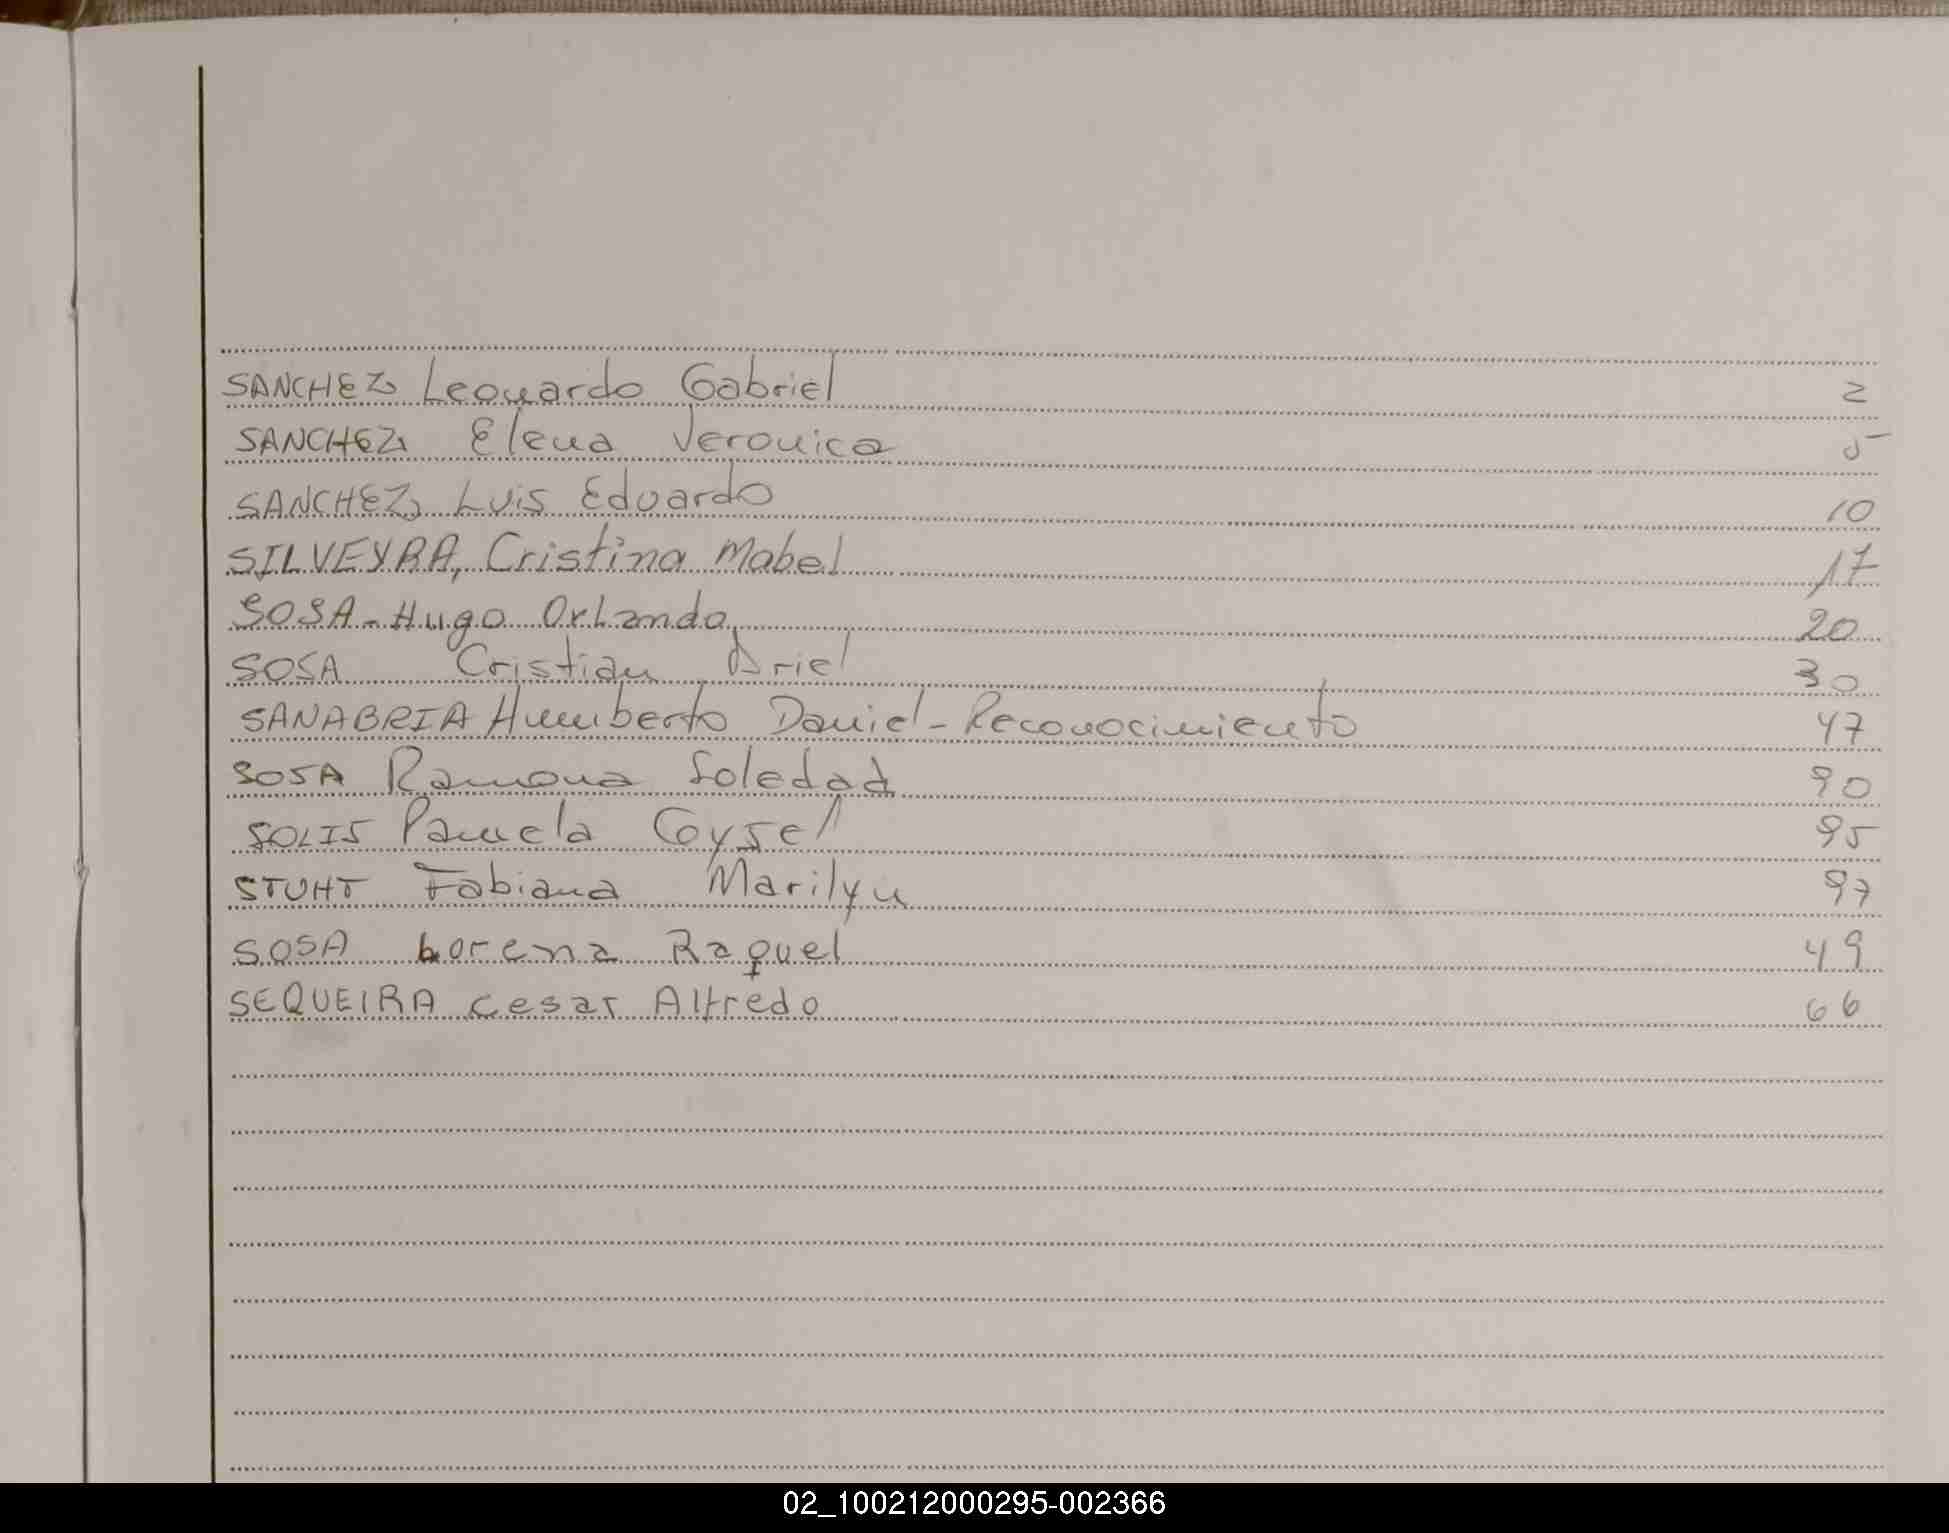 SANCHEZ Leonardo Gabriel 2
SANCHEZ Elena Veronica 5
SANCHEZ Luis Eduardo 10
SILVEYRA, Cristina Mabel 17
SOSA - Hugo Orlando 20
SOSA Cristian Ariel 30
SANABRIA Humberto Daniel - Reconocimiento 47
SOSA Ramona Soledad 90
SOLIS Pamela Goysel 95
STUHT Fabiana Marilyn 97
SOSA Lorena Raquel 49
SEQUEIRA Cesar Alfredo 66
02_100212000295-002366